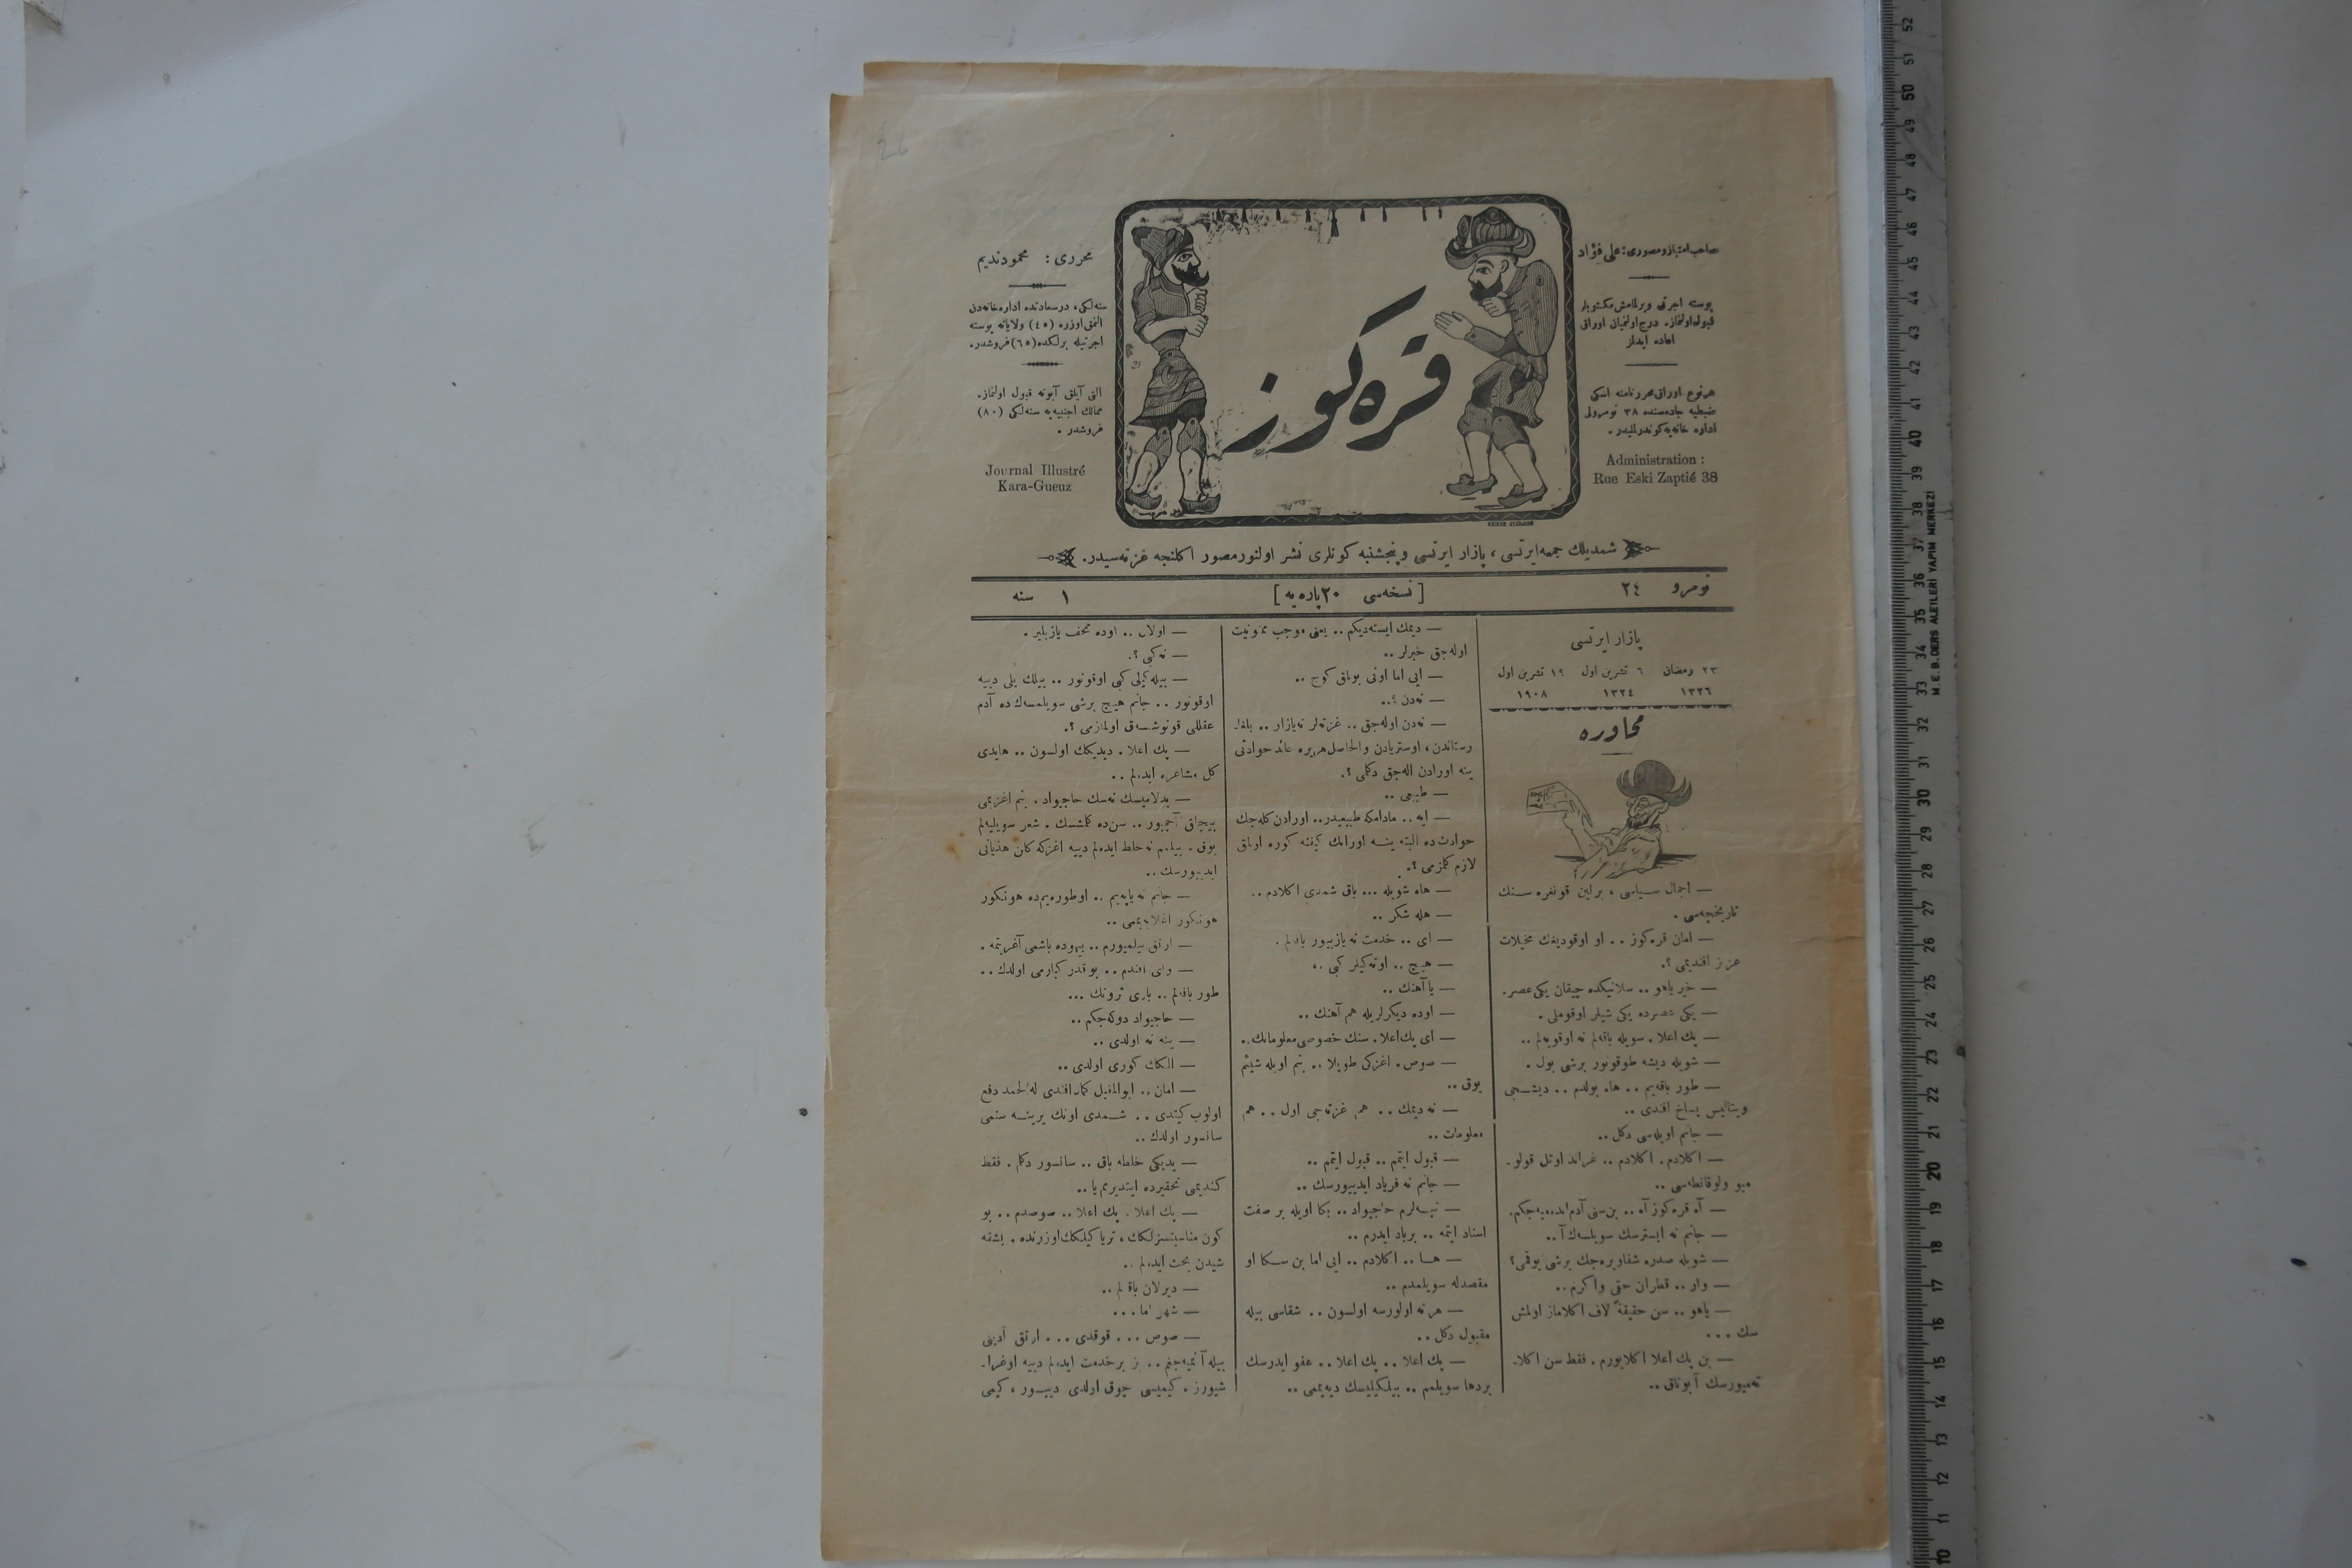 26
صاحب امتیاز و مصوری: علی فؤاد
پوسته اجرتی ویرلمامش مکتوبلر
قبول اولنماز. درج اولنمیان اوراق
اعاده ایدلز
هر نوع اوراق محرر نامنه اسکی
ضبطیه جاده‌سنده ۳۸ نومرولی
اداره خانه‌یه کوندرلملیدر.
Administration :
Rue Eski Zaptié 38
قره کوز
محرری : محمود ندیم
سنه‌لکی، درسعادتده اداره‌خانه‌دن
آلنمق اوزره (٤٥) ولایاته پوسته
اجرتیله برلکده (٦٥) غروشدر.
التی آیلق آبونه قبول اولنماز.
ممالک اجنبیه‌یه سنه‌لکی (٨٠)
غروشدر .
Journal Illustré
Kara-Gueuz
شمدیلك جمعه‌ایرتسی ، پازار ایرتسی و پنجشنبه کونلری نشر اولنور مصور اکلنجه غزته‌سیدر.
نومرو ٢٤
[ نسخه‌سی ٢٠ پاره‌یه ]
١ سنه
پازار ایرتسی
٢٣ رمضان ٦ تشرین اول ١٩ تشرین اول
١٣٢٦ ١٣٢٤ ١٩٠٨
محاوره
— اجمال سیاسی ، برلین قونغره سنك
تاریخچه‌سی .
— امان قره کوز . . او اوقودیغك مخیلات
عزیز افندیمی ؟.
— خیر یاهو .. سلانیکده چیقان یکی عصر.
— یکی عصرده یکی شیلر اوقوملی .
— پك اعلا . سویله باقه‌لم نه اوقویه‌لم ..
— شویله دیشه طوقونور برشی بول .
— طور باقه‌یم .. هاه بولدم .. دیشجی
ویتالیس یساخ افندی ..
— جانم اویله‌سی دکل ..
— اکلادم . اکلادم .. غراند اوتل قولو.
— آه قره کوز آه .. بن سنی آدم ایده‌میه‌جکم.
— جانم نه ایسترسك سویلسه‌ك آ ..
— شویله صدره شفا ویره‌جك برشی یوقمی ؟
— وار .. قطران حقی واکرم ..
— یاهو .. سن حقیقةً لاف اکلاماز اولمش
سك ...
— بن پك اعلا اکلایورم . فقط سن اکلا.
ته‌میورسك آ بوناق ..
— دیمك ایسته‌دیکم .. یعنی موجب ممنونیت
اوله‌جق خبرلر ..
— ایی اما اونی بولمق کوج ..
— نه‌دن ؟..
— نه‌دن اوله‌جق .. غزته‌لر نه‌یازار .. بلغا.
رستاندن ، اوستریادن والحاصل هریره عائد حوادثی
ینه اورادن اله‌جق دکلمی ؟.
— طبیعی ..
— ایه .. مادامکه طبیعیدر.. اورادن کله‌جك
حوادث ده البته ینه اورانك کیفنه کوره اولمق
لازم کلزمی ؟.
— هاه شویله ... باق شمدی اکلادم ..
— هله شکر ..
— ای .. خدمت نه یازییور باقه‌لم .
— هیچ .. اوته‌کیلر کبی ..
— یا آهنك ..
— اوده دیکرلریله هم آهنك ..
— ای پك اعلا . سنك خصوصی معلوماتك ..
— صوص . اغزکی طوپلا .. بنم اویله شیئم
یوق ..
— نه دیمك .. هم غزته‌جی اول .. هم
معلومات ..
— قبول ایتم .. قبول ایتم ..
— جانم نه فریاد ایدییورسك ..
— نیسه‌لرم حاجیواد .. بکا اویله بر صفت
اسناد ایتمه .. برباد ایدرم ..
— ها .. اکلادم .. ایی اما بن سکا او
مقصدله سویلمدم ..
— هر نه اولورسه اولسون .. شقاسی بیله
مقبول دکل ..
— پك اعلا .. پك اعلا .. عفو ایدرسك
بردها سویلمم .. بیلکیلیسك دیه‌یممی ..
— اولان .. اوده تحف یازیلیر .
— نه کبی ؟.
— بیله کیلی کبی اوقونور .. بیلك یلی دییه
اوقونور .. جانم هیچ برشی سویلمسه‌ك ده آدم
عقللی قونوشسه‌ق اولمازمی ؟.
— پك اعلا . دیدیکك اولسون .. هایدی
کل مشاعره ایده‌لم ..
— بدلامیسك نه‌سك حاجیواد . بنم اغزیمی
بیچاق آچمیور .. سن ده کلمشسك . شعر سویلیه‌لم
یوق . بیلمم نه خلط ایده‌لم دییه اغزکه کلن هذیانی
ایدییورسك ..
— جانم نه یاپه‌یم .. اوطوره‌یم‌ده هونکور
هونکور اغلایه‌یممی ..
— ارتق بیلمیورم .. بیهوده باشمی آغریتمه .
— وای افندم .. بو قدر کبارمی اولدك ..
طور باقه‌لم .. باری ثروتك ...
— حاجیواد دوکه‌جکم ..
— ینه نه اولدی ..
— الکك کوری اولدی ..
— امان .. ابوالمقبل کمال افندی لله‌الحمد دفع
اولوب کیتدی .. شمدی اونك یرینه سنمی
سانسور اولدك ..
— یدیکی خلطه باق .. سانسور دکل . فقط
کندیمی تحقیرده ایتدیرمم یا ..
— پك اعلا . پك اعلا .. صوصدم .. بو
کون مناسبتسزلکك ، تریاکیلکك اوزرنده . بشقه
شیدن بحث ایده‌لم ..
— دیرلان باقه‌لم ..
— شهر اما ...
— صوص ... قوقدی ... ارتق آدینی
بیله آ‌کمیه‌جغم .. بز برخدمت ایده‌لم دییه اوغرا.
شیورز . کیمیسی چوق اولدی دییور ، کیمی
M.E.B. DERS ALETLERİ YAPIM MERKEZİ
52
51
50
49
48
47
46
45
44
43
42
41
40
39
38
37
36
35
34
33
32
31
30
29
28
27
26
25
24
23
22
21
20
19
18
17
16
15
14
13
12
11
10